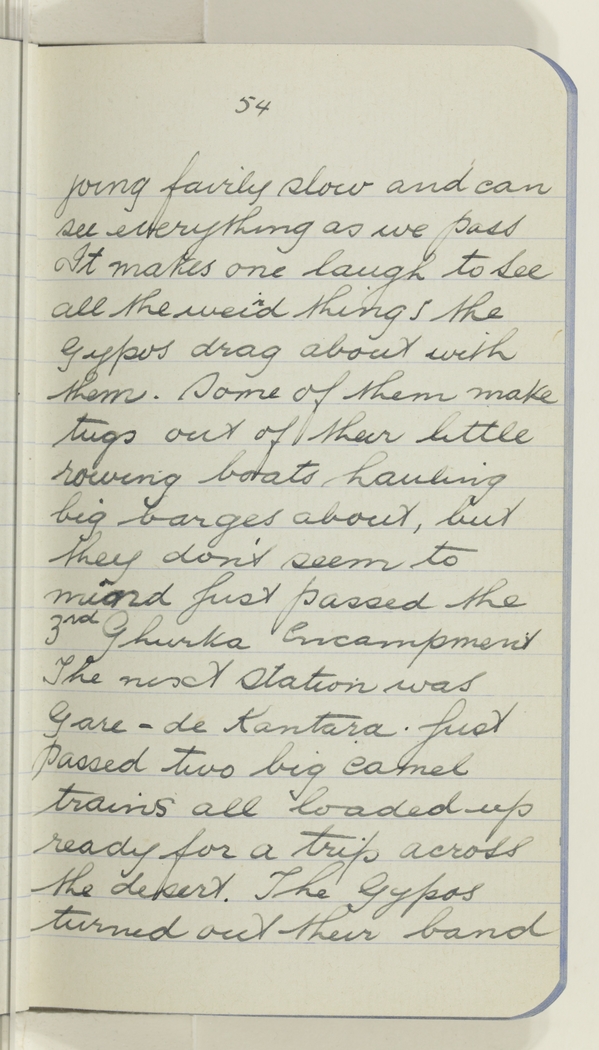 54
going fairly slow and can
see everything as we pass
It makes one laugh to see
all the weird things the
Gypos drag about with
them. Some of them make
tugs out of their little
rowing boats hauling
big barges about, but
they don't seem to
mind Just passed the
3rd Ghurka Encampment
The next station was
Gare-de Kantara. Just
passed two big camel
trains all loaded up
ready for a trip across
the desert. The Gypos
turned out their band